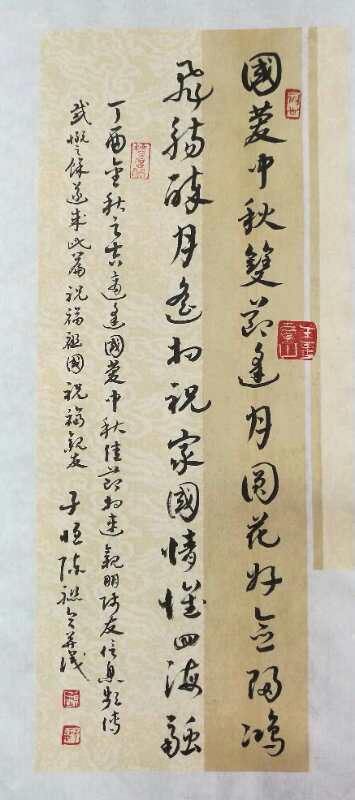 國慶中秋雙節逢月圓花好念歸鴻
飛觴醉月遙相祝家國情懷四海融
丁酉金秋之吉適逢國慶中秋佳節相連親朋師友信息頻傳
感慨之餘遂成此篇祝福祖國祝福親友
子恒陳